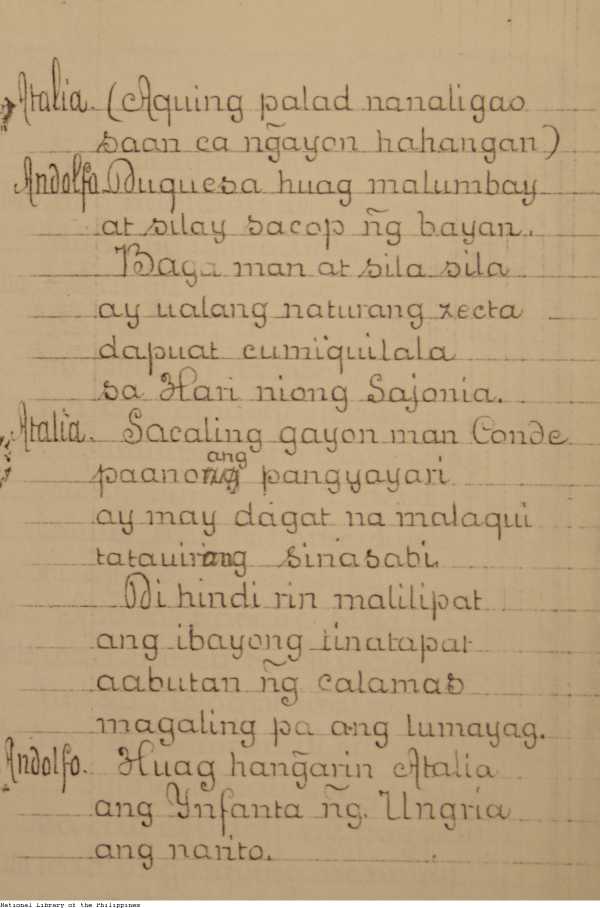 Atalia. (Aquing palad nanaligao
saan ca ng̃ayon hahangan)
Andolfo. Duquesa huag malumbay
at silay sacop ñg bayan.
Baga man at sila sila
ay ualang naturang zecta
dapuat cumiquilala
sa Hari niong Sajonia.
Atalia. Sacaling gayon man Conde
ang
paanong pangyayari
ay may dagat na malaqui
tatauirang sinasabi.
Di hindi rin malilipat
ang ibayong tinatapat
aabutan ñg calamas
magaling pa ang lumayag.
Andolfo. Huag hang̃arin Atalia
ang Ynfanta ñg. Ungria
ang narito.
National Library of the Philippines